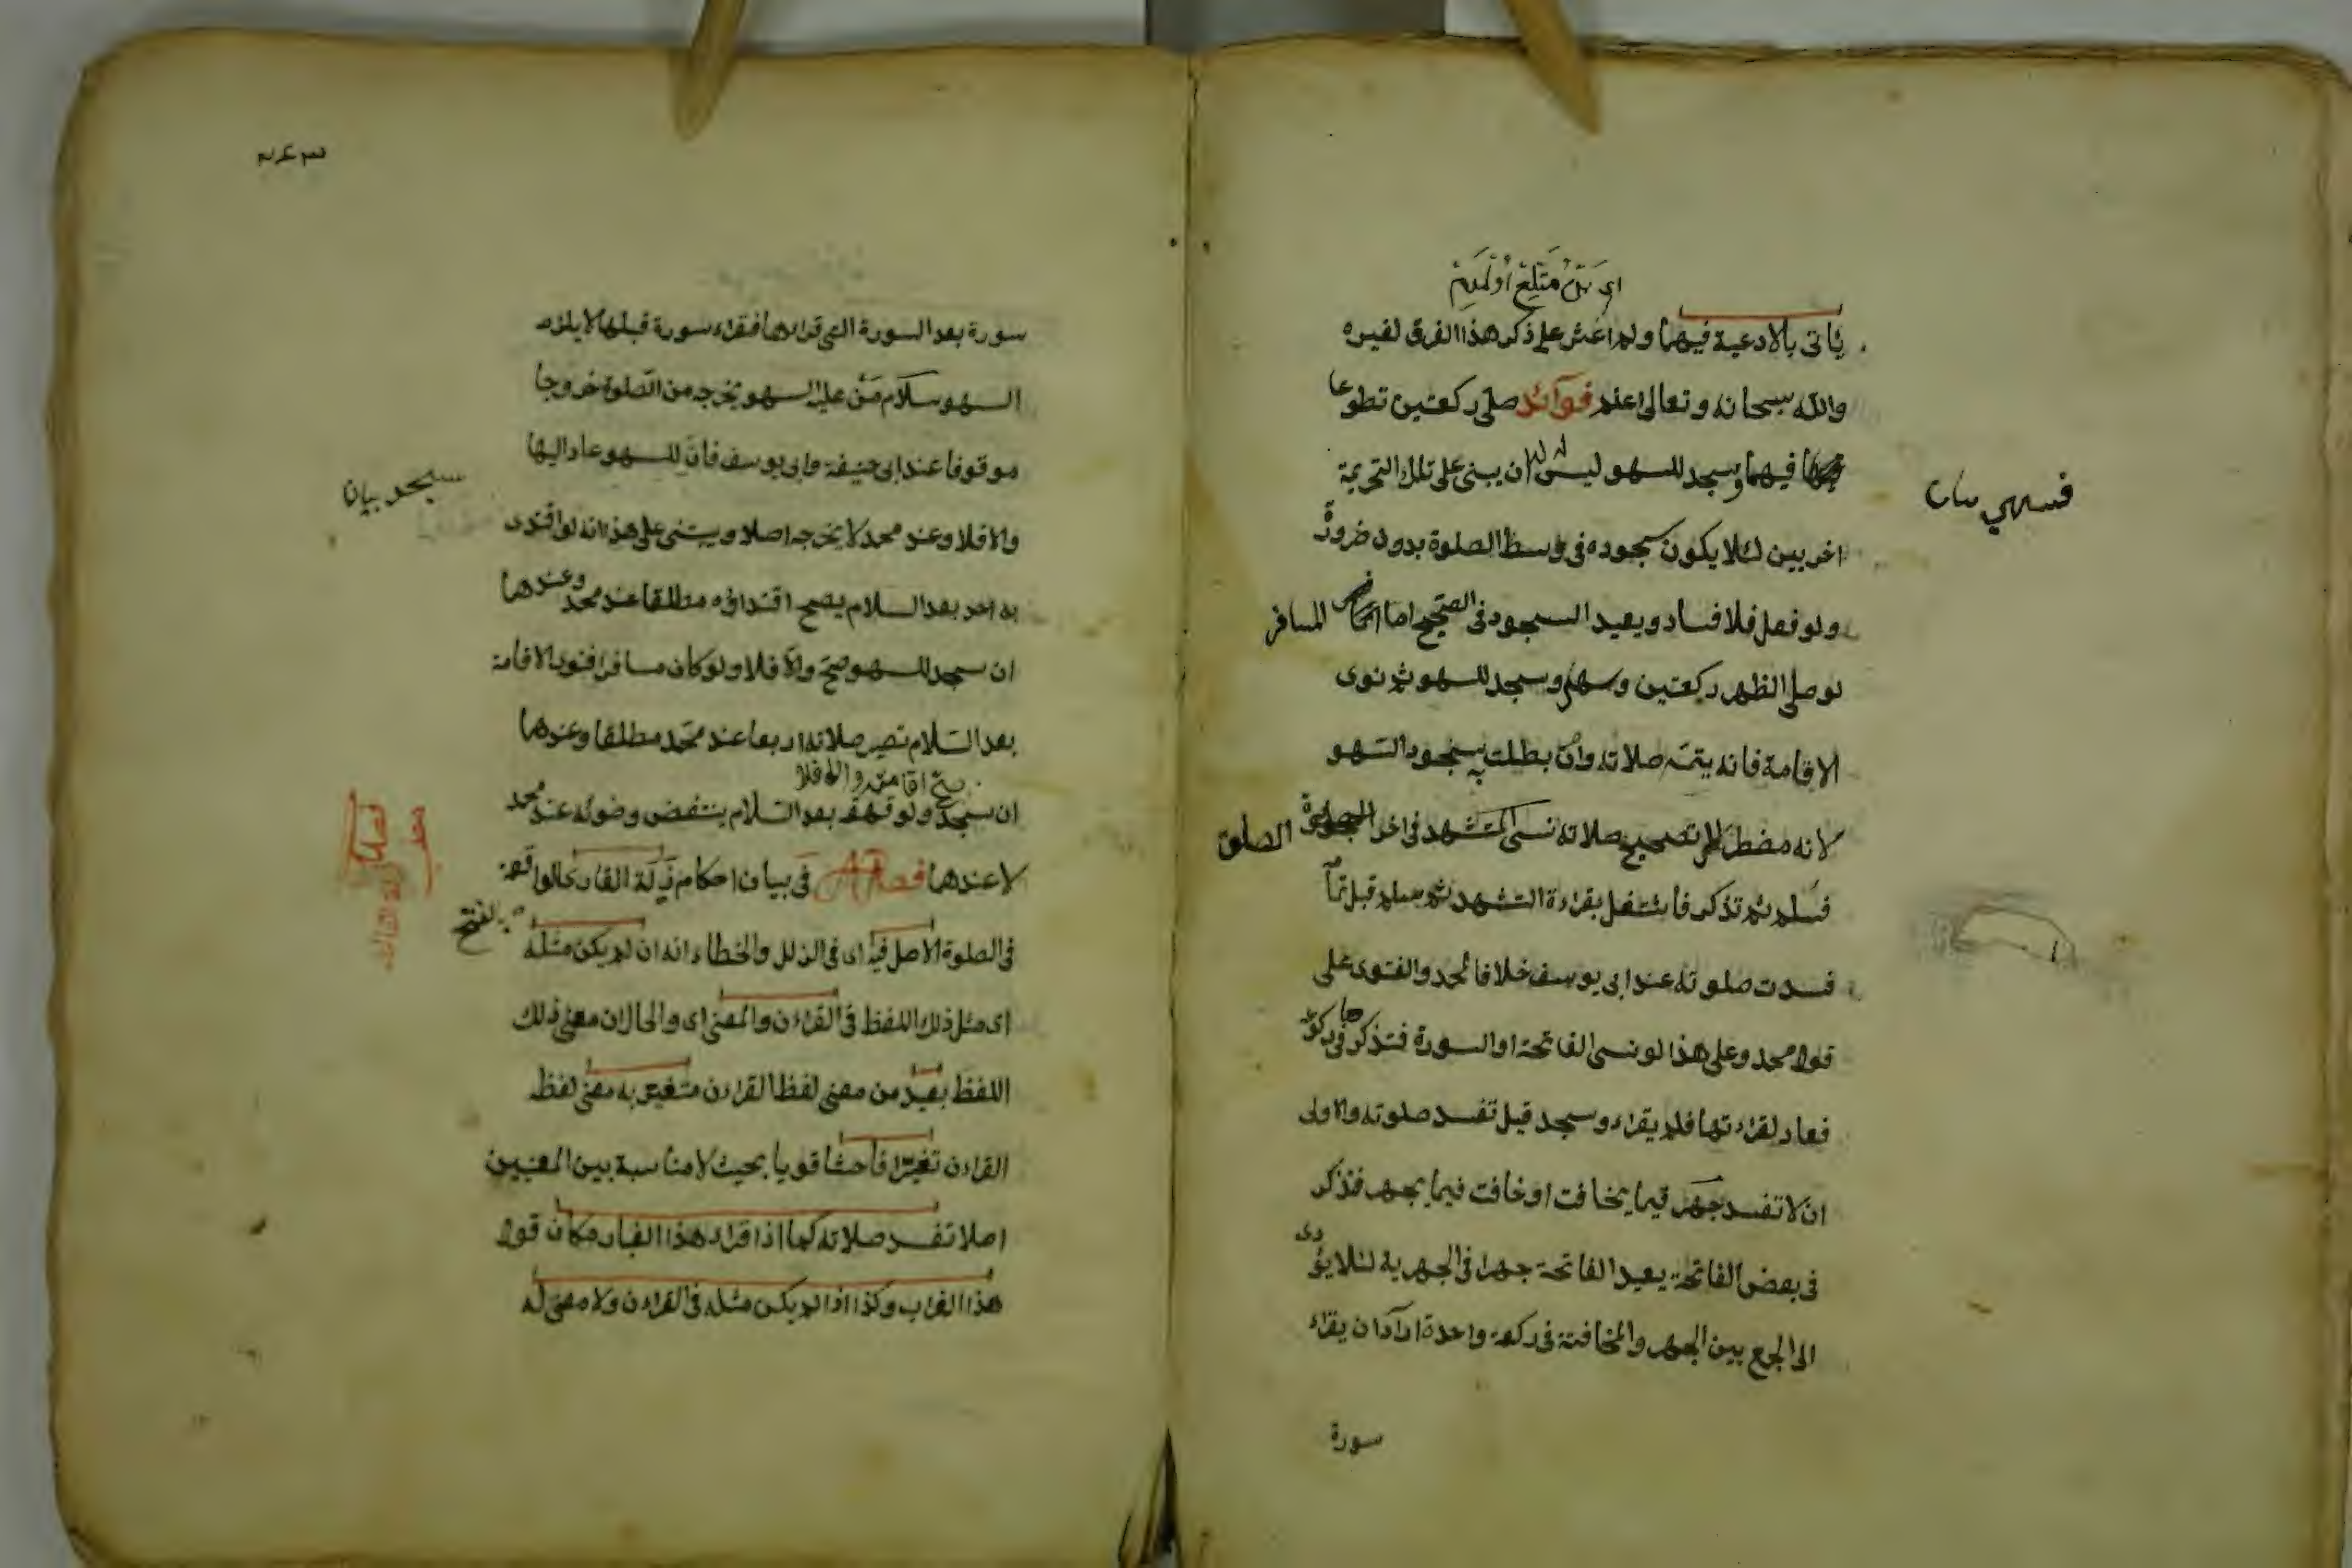 يأتى بالادعية فيهما ولم اعثر على ذكر هذا الفرق لغيره
والله سبحانه وتعالى اعلم فوائد صلى ركعتين تطوعا
فيهما وسجد للسهو ليس له ان يبنى على تلك التحريمة
اخريين لئلا يكون سجوده فى وسط الصلوة بدون ضرورة
ولو فعل فلا فساد ويعيد السجود فى الصحيح اما المسافر
لو صلى الظهر ركعتين وسهى وسجد للسهو ثم نوى
الاقامة فانه يتم صلاته وان بطلت به سجود السهو
لانه مضطر الى تصحيح صلاته نسى التشهد فى اخر الصلوة
فسلم ثم تذكر فاشتغل بقراءة التشهد ثم سلم قبل تمامه
فسدت صلوته عند ابى يوسف خلافا لمحمد والفتوى على
قول محمد وعلى هذا لو نسى الفاتحة او السورة فتذكرها فى ركوعه
فعاد لقراءتها فلم يقراء وسجد قيل تفسد صلوته والاولى
ان لا تفسد جهر فيما يخافت او خافت فيما يجهر فتذكر
فى بعض الفاتحة يعيد الفاتحة جهرا فى الجهرية لئلا يؤدى
الى الجمع بين الجهر والمخافتة فى ركعة واحدة اراد ان يقراء
سورة
فسهى بيان
سورة بعد السورة التى قراءها فقراء سورة قبلها لا يلزمه
السهو سلام من عليه السهو يخرجه من الصلوة خروجا
موقوفا عند ابى حنيفة وابى يوسف فان للسهو عاد اليها
والا فلا وعند محمد لا يخرجه اصلا ويبتنى على هذا انه لو اقتدى
به احد بعد السلام يصح اقتداؤه مطلقا عند محمد وعندهما
ان سجد للسهو صح والا فلا ولو كان مسافرا فنوى الاقامة
بعد السلام تصير صلاته اربعا عند محمد مطلقا وعندهما
صح اقامته والا فلا
ان سجد ولو قهقه بعد السلام ينتقض وضوئه عند محمد
لا عندهما فصل فى بيان احكام زلة القارى الواقعة
فى الصلوة الاصل فيه اى فى الزلل والخطاء انه ان لم يكن مثله
اى مثل ذلك اللفظ فى القراءن والمعنى اى والحال ان معنى ذلك
اللفظ بعيد من معنى لفظ القراءن متغير به معنى لفظ
القراءن تغيرا فاحشا قويا بحيث لا مناسبة بين المعنيين
اصلا تفسد صلاته كما اذا قراء هذا الغبار مكان قوله
هذا الغراب وكذا اذا لم يكن مثله فى القراءن ولا معنى له
سجد بيان
بالفتح